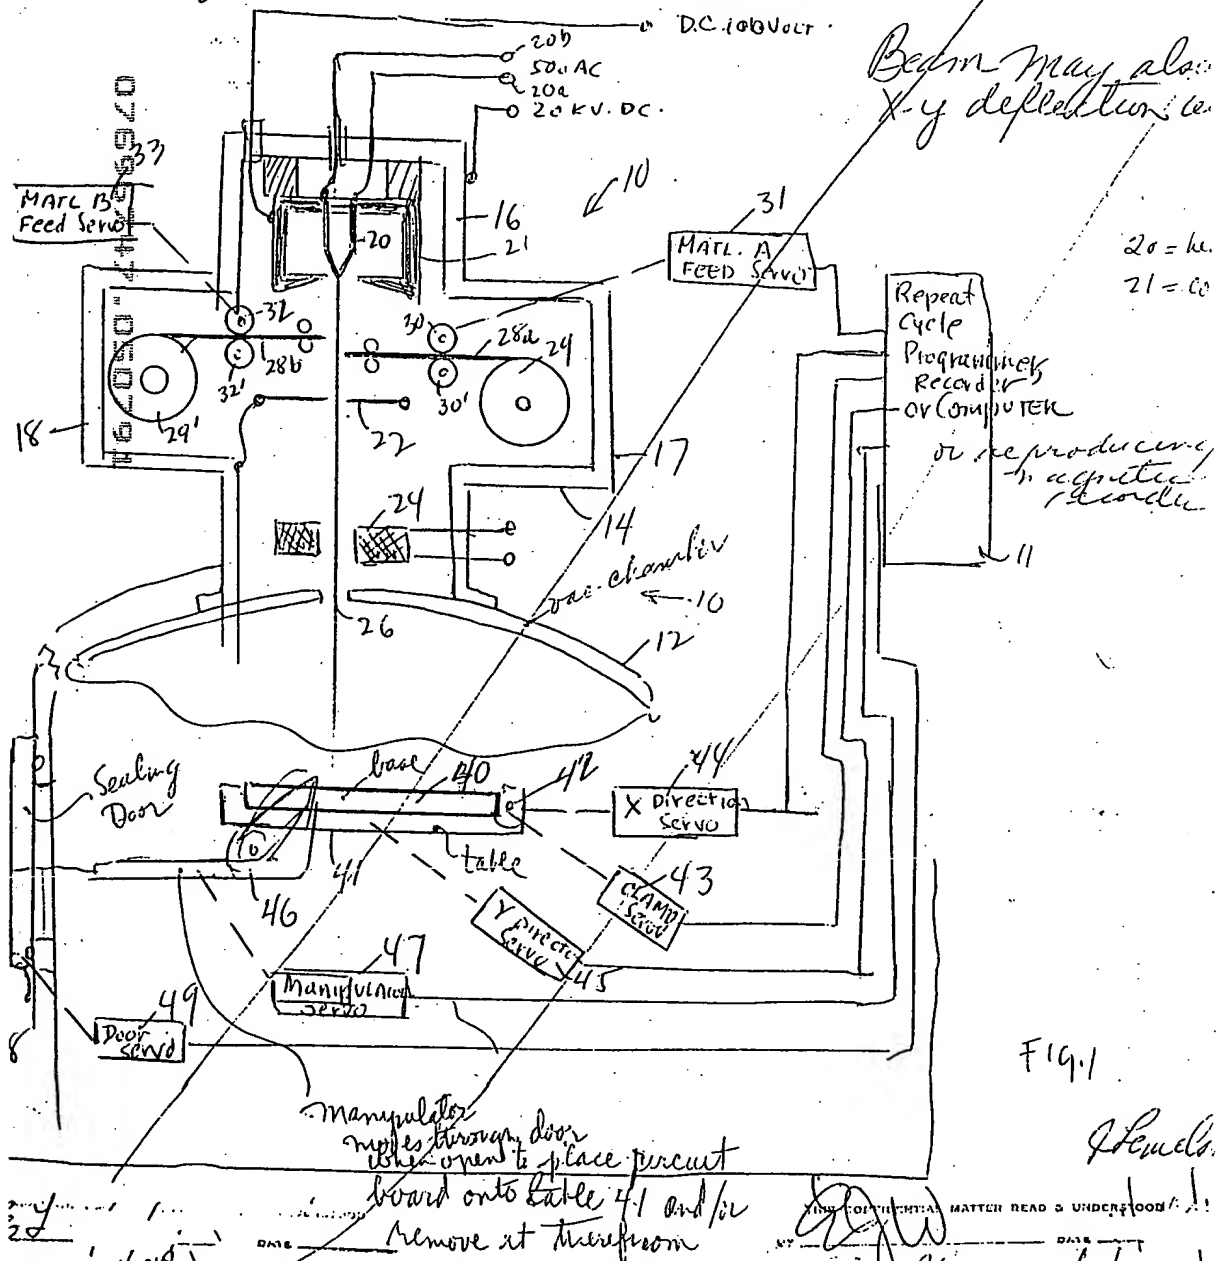 D.C. 100 VOLT
20b
50v AC
20a
20 KV. DC.
Beam may also
X-y deflection
33
MATL B
Feed Servo
10
16
21
20
31
MATL. A
FEED Servo
20 =
21 =
Repeat
Cycle
Programmer
Recorder
or Computer
or reproducing
magnetic
recorder
11
32
28b
32'
29'
30
28a
29
30'
22
18
17
14
24
vac. chamber
10
26
12
Sealing
Door
base
40
42
44
X Direction
Servo
table
41
43
CLAMP
Servo
46
Y Direction
Servo
45
47
Manipulator
Servo
49
Door
servo
8
FIG.1
manipulator
moves through door
when open to place circuit
board onto table 41 and/or
remove it therefrom
CONFIDENTIAL MATTER READ & UNDERSTOOD
DATE
BY
DATE